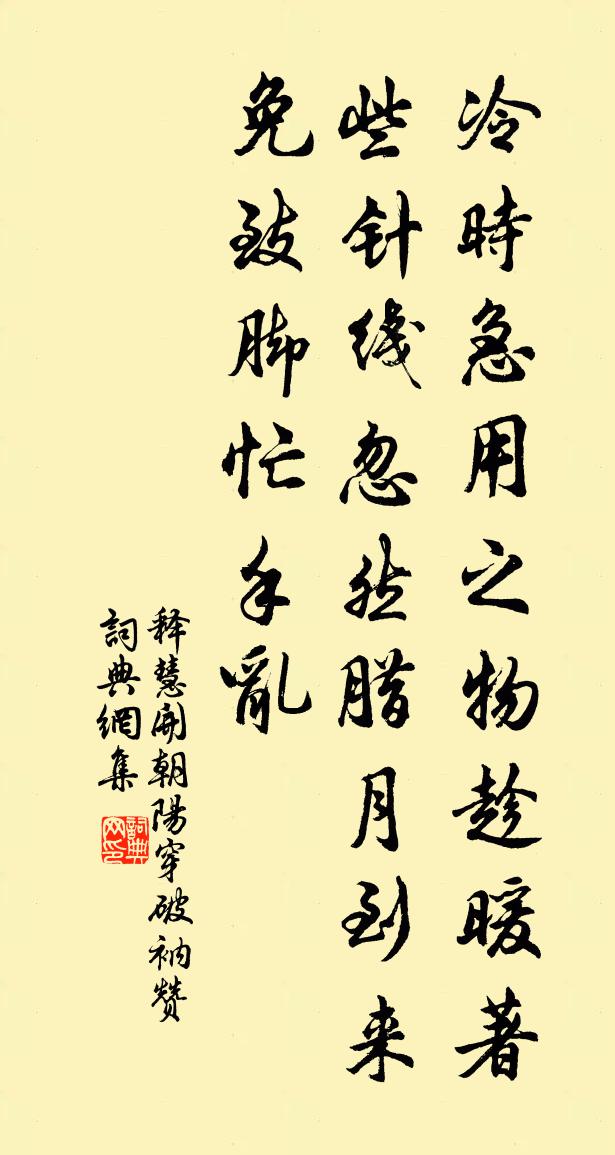 冷時急用之物趁暖著
些针线忽然腊月到来
免致脚忙手亂
释慧開朝陽穿破衲赞
詞典網集
詞典网印